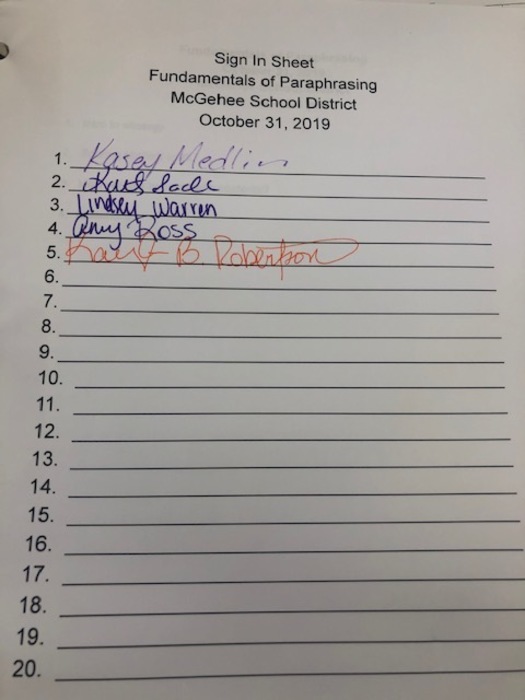 Sign In Sheet
Fundamentals of Paraphrasing
McGehee School District
October 31, 2019
1. Kasey Medlin
2.
3. Lindsey Warren
4. Amy Ross
5. B. Robertson
6.
7.
8.
9.
10.
11.
12.
13.
14.
15.
16.
17.
18.
19.
20.